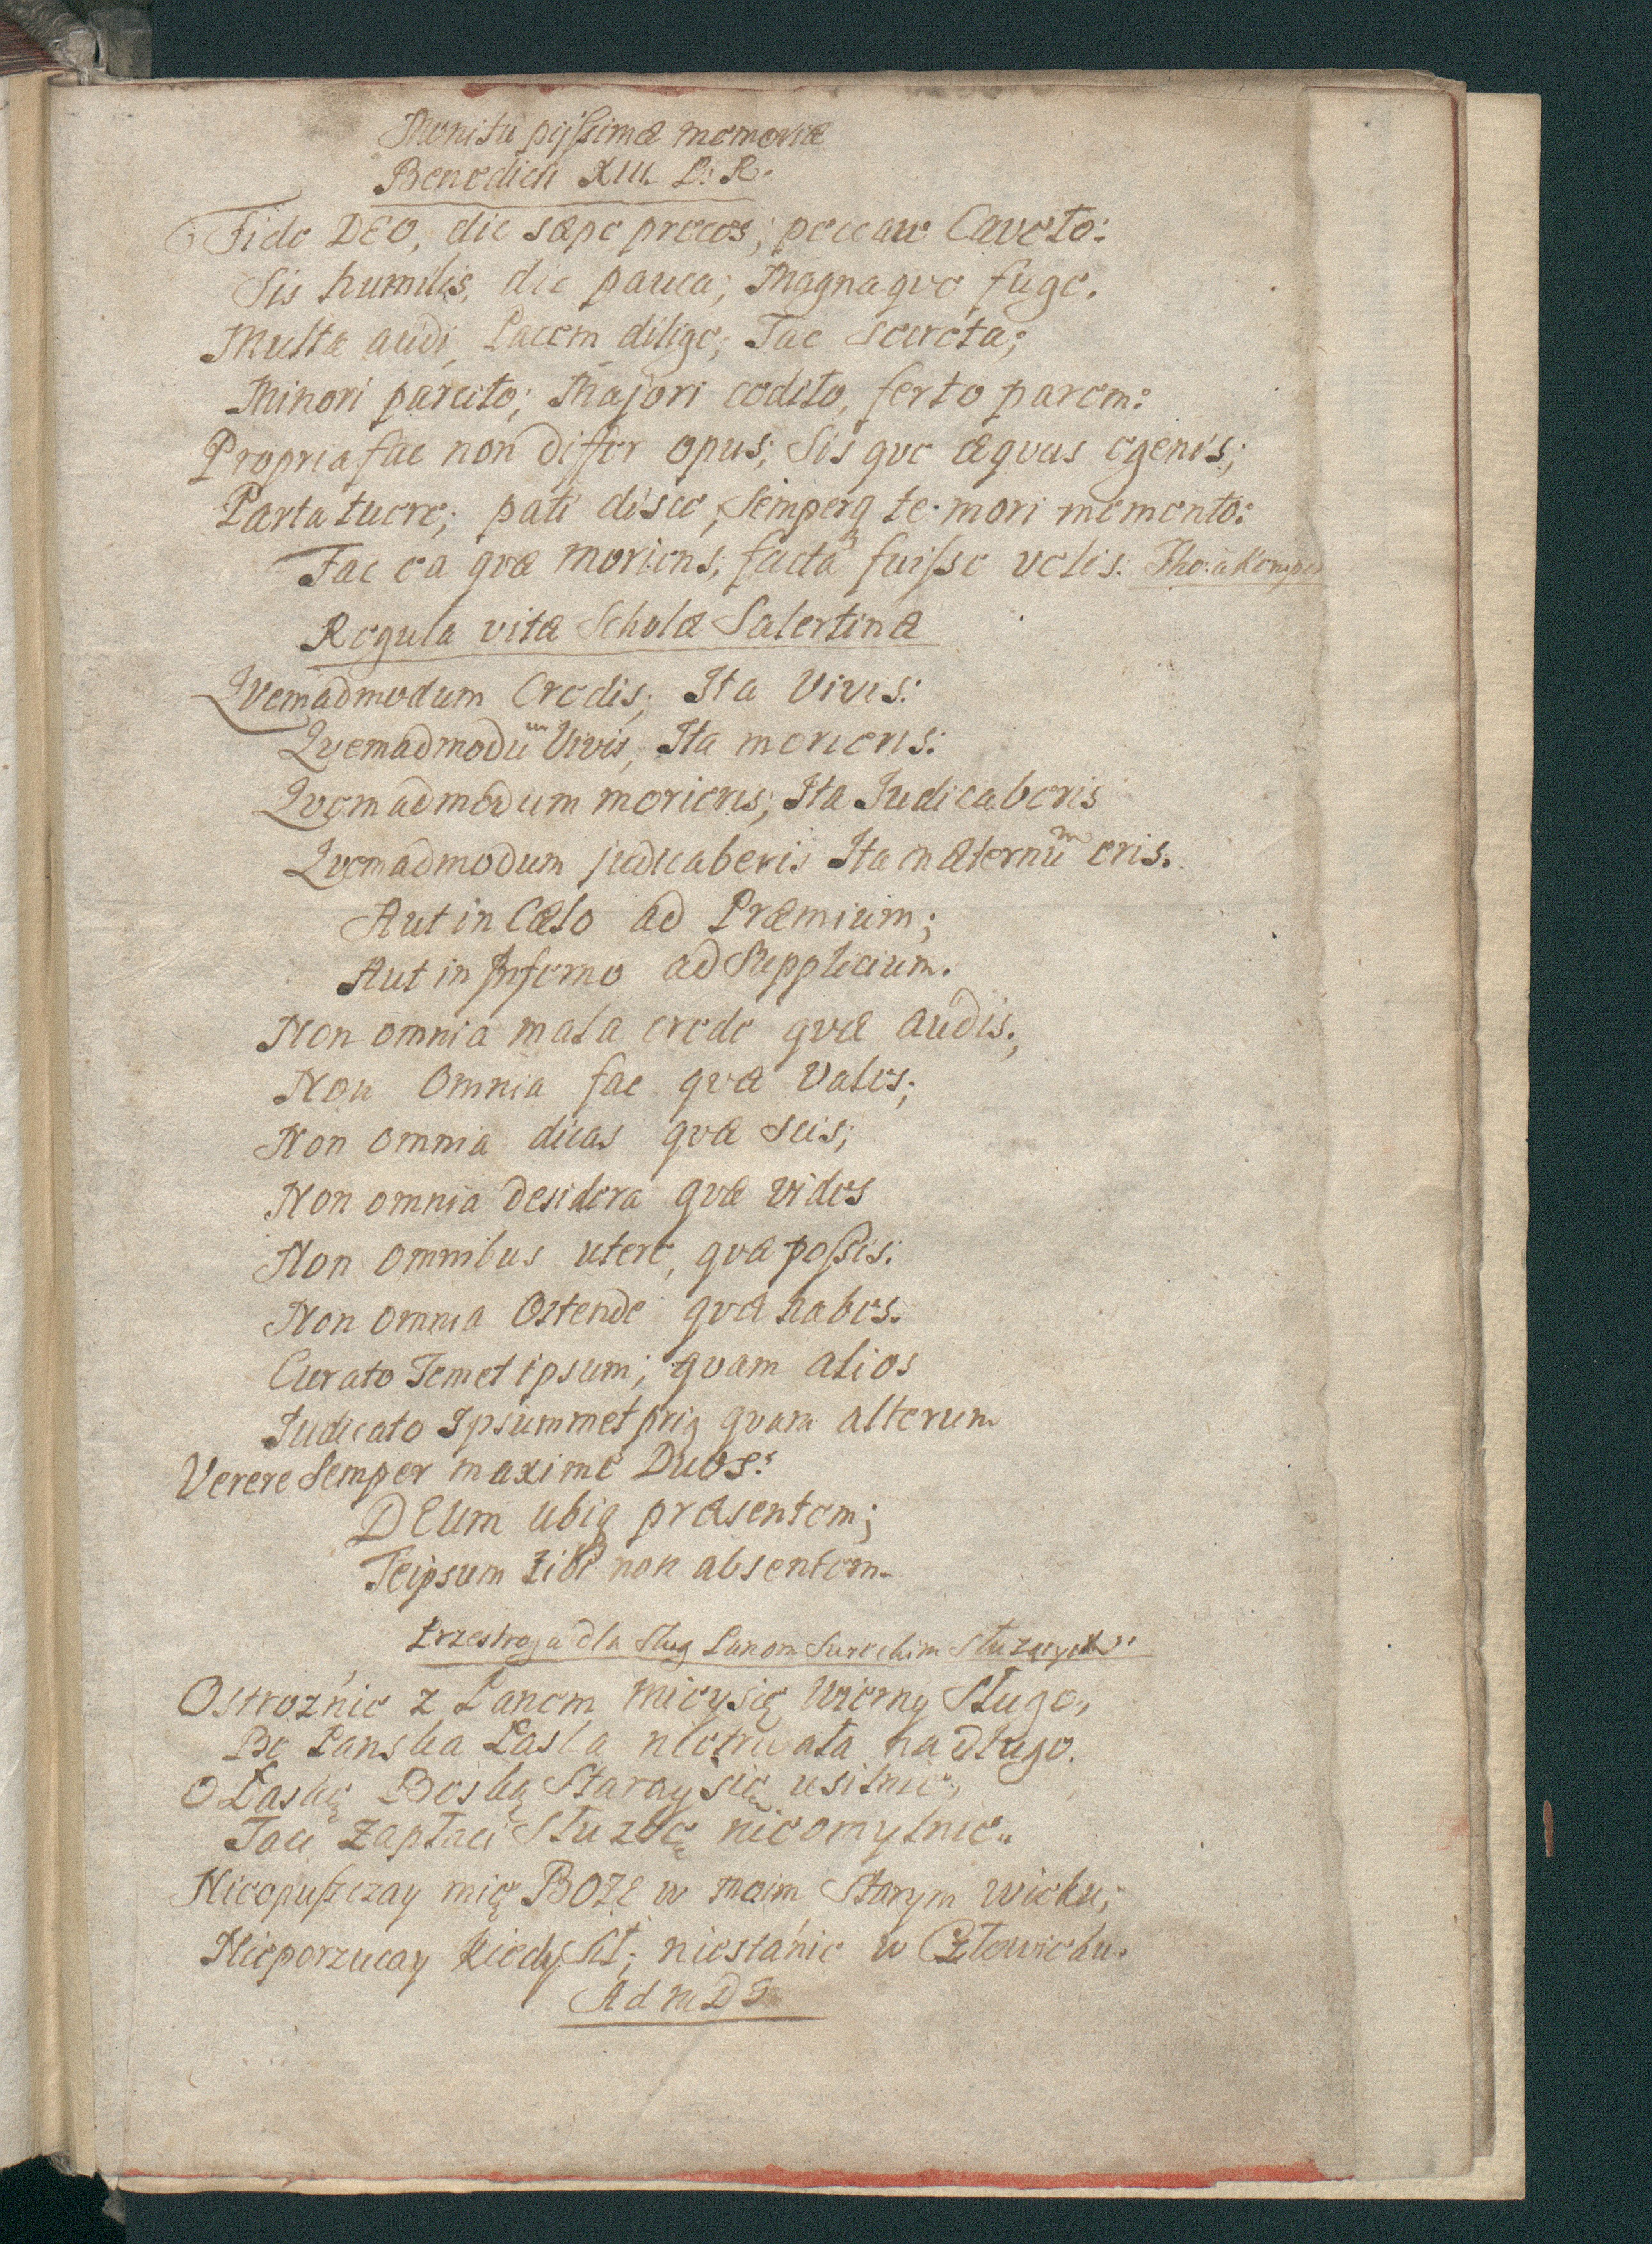 Monita pijssimæ memoriæ
Benedicti XIII. P: R.
Fide DEO, dic sæpe preces; peccare Caveto:
Sis humilis, dic pauca; Magnaqve fuge.
Multa audi, Pacem dilige; Fac secreta;
Minori parcito; Majori cedito, ferto parem:
Propria fac non differ opus; Sisqve æqvus egenis;
Parta tuere; pati disce, Semperq te mori memento:
Fac ea qvæ moriens; facta fuisse velis. Tho: à Kempis
Regula vitæ Scholæ Salertinæ
Qvemadmodum Credis; Ita Vivis:
Qvemadmodum Vivis, Ita morieris:
Qvemadmodum morieris; Ita Iudicaberis
Qvemadmodum judicaberis Ita in æternum eris.
Aut in Cælo ad Præmium;
Aut in Inferno ad Supplicium.
Non omnia mala crede qvæ audis;
Non Omnia fac qvæ Vales;
Non omnia dicas qvæ Scis;
Non omnia Desidera qvæ vides
Non omnibus utere, qvæ possis:
Non omnia Ostende qvæ habes:
Curato Temet ipsum; qvam alios
Iudicato Ipsummet priq qvam alterum
Verere Semper maxime Duos:
DEUm ubiq præsentem;
Teipsum tibi non absentem.
Przestroga dla Sług Panom Służących
Ostrożnie z Panem mieysię Wierny Sługo,
Bo Panska Łaska nietrwała na długo.
O Łaskę Boską Staray się usilnie,
Taci Zapłaci Służbę nieomylnie.
Nieopuszczay mię BOZE w moim Starym wieku;
Nieporzucay kiedy Sił; niestánie w Człowieku.
Ad M D G